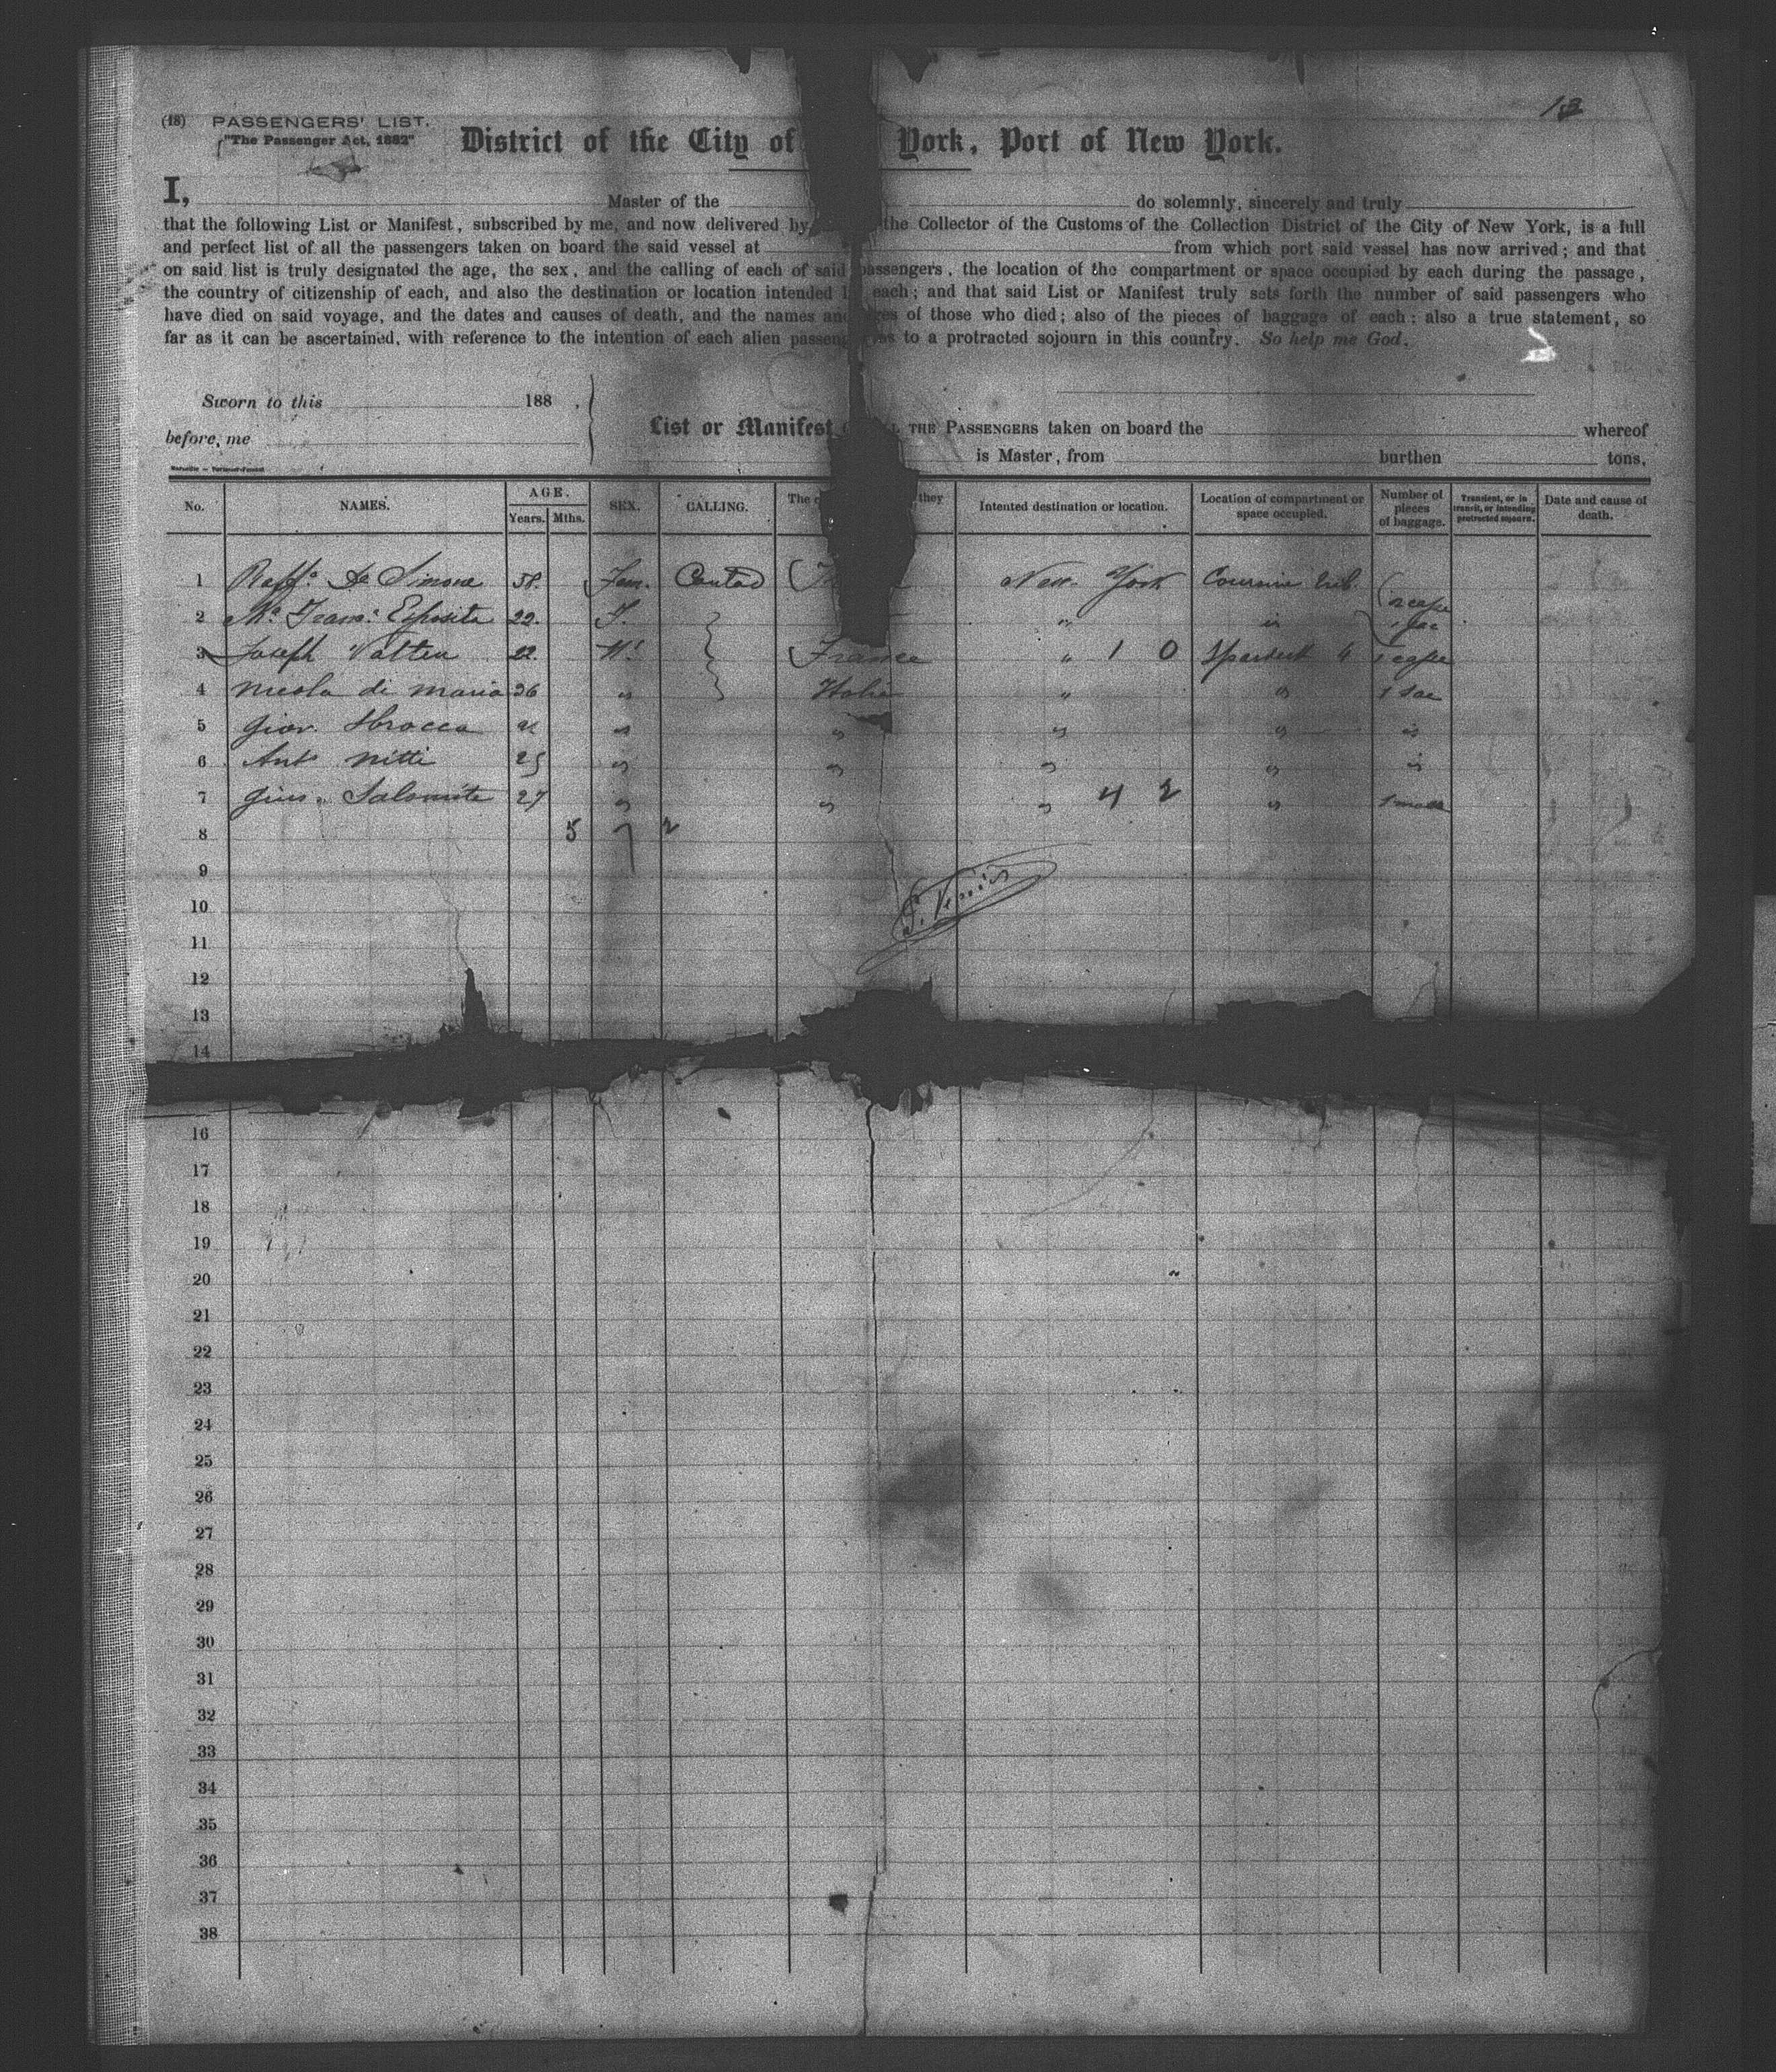 13
(18) PASSENGERS' LIST.
"The Passenger Act, 1882"
District of the City of York, Port of New York.
I, Master of the do solemnly, sincerely and truly
that the following List or Manifest, subscribed by me, and now delivered by the Collector of the Customs of the Collection District of the City of New York, is a full
and perfect list of all the passengers taken on board the said vessel at from which port said vessel has now arrived; and that
on said list is truly designated the age, the sex, and the calling of each of said passengers, the location of the compartment or space occupied by each during the passage,
the country of citizenship of each, and also the destination or location intended each; and that said List or Manifest truly sets forth the number of said passengers who
have died on said voyage, and the dates and causes of death, and the names and ages of those who died; also of the pieces of baggage of each; also a true statement, so
far as it can be ascertained, with reference to the intention of each alien to a protracted sojourn in this country. So help me God.
Sworn to this 188 ,
before, me
List or Manifest THE PASSENGERS taken on board the whereof
is Master, from burthen tons,
No. NAMES. AGE. Years. Mths. SEX. CALLING. The they Intented destination or location. Location of compartment or space occupied. Number of pieces of baggage. Transient, or in transit, or intending protracted sojourn. Date and cause of death.
1 Raff.a De Simone 38. Fem. New York
2 Ma Fran.a Esposito 22. F. "
3 Joseph Vatten 22 France " 1 0 4
4 Nicola di Maria 36 " Italie " " 1 sac
5 Giov. Sbrocca " " " " "
6 Ant. Nitti 25 " " " " "
7 Gius. 27 " " " 4 2 "
8 5 7 2
9
10
11
12
13
14
16
17
18
19
20
21
22
23
24
25
26
27
28
29
30
31
32
33
34
35
36
37
38